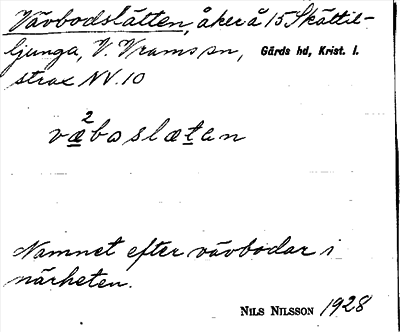 Vävbodslätten, åker å 15 Skättil-
ljunga, V. Vrams sn, Gärds hd, Krist. l.
strax NV. 10
væ²boslætan
Namnet efter vävbodar i
närheten.
NILS NILSSON 1928